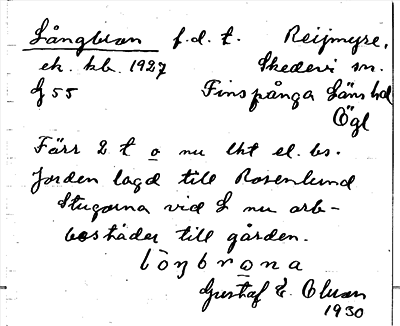 Långbron f.d.t. Reijmyre,
ek. kb. 1927 Skedevi sn.
G 55 Finspånga Läns hd
Ögl
Förr 2 t o nu lht el. bs.
Jorden lagd till Rosenlund
Stugorna vid L nu arb-
bostäder till gården.
lòŋbrona
Gustaf E. Olson
1930